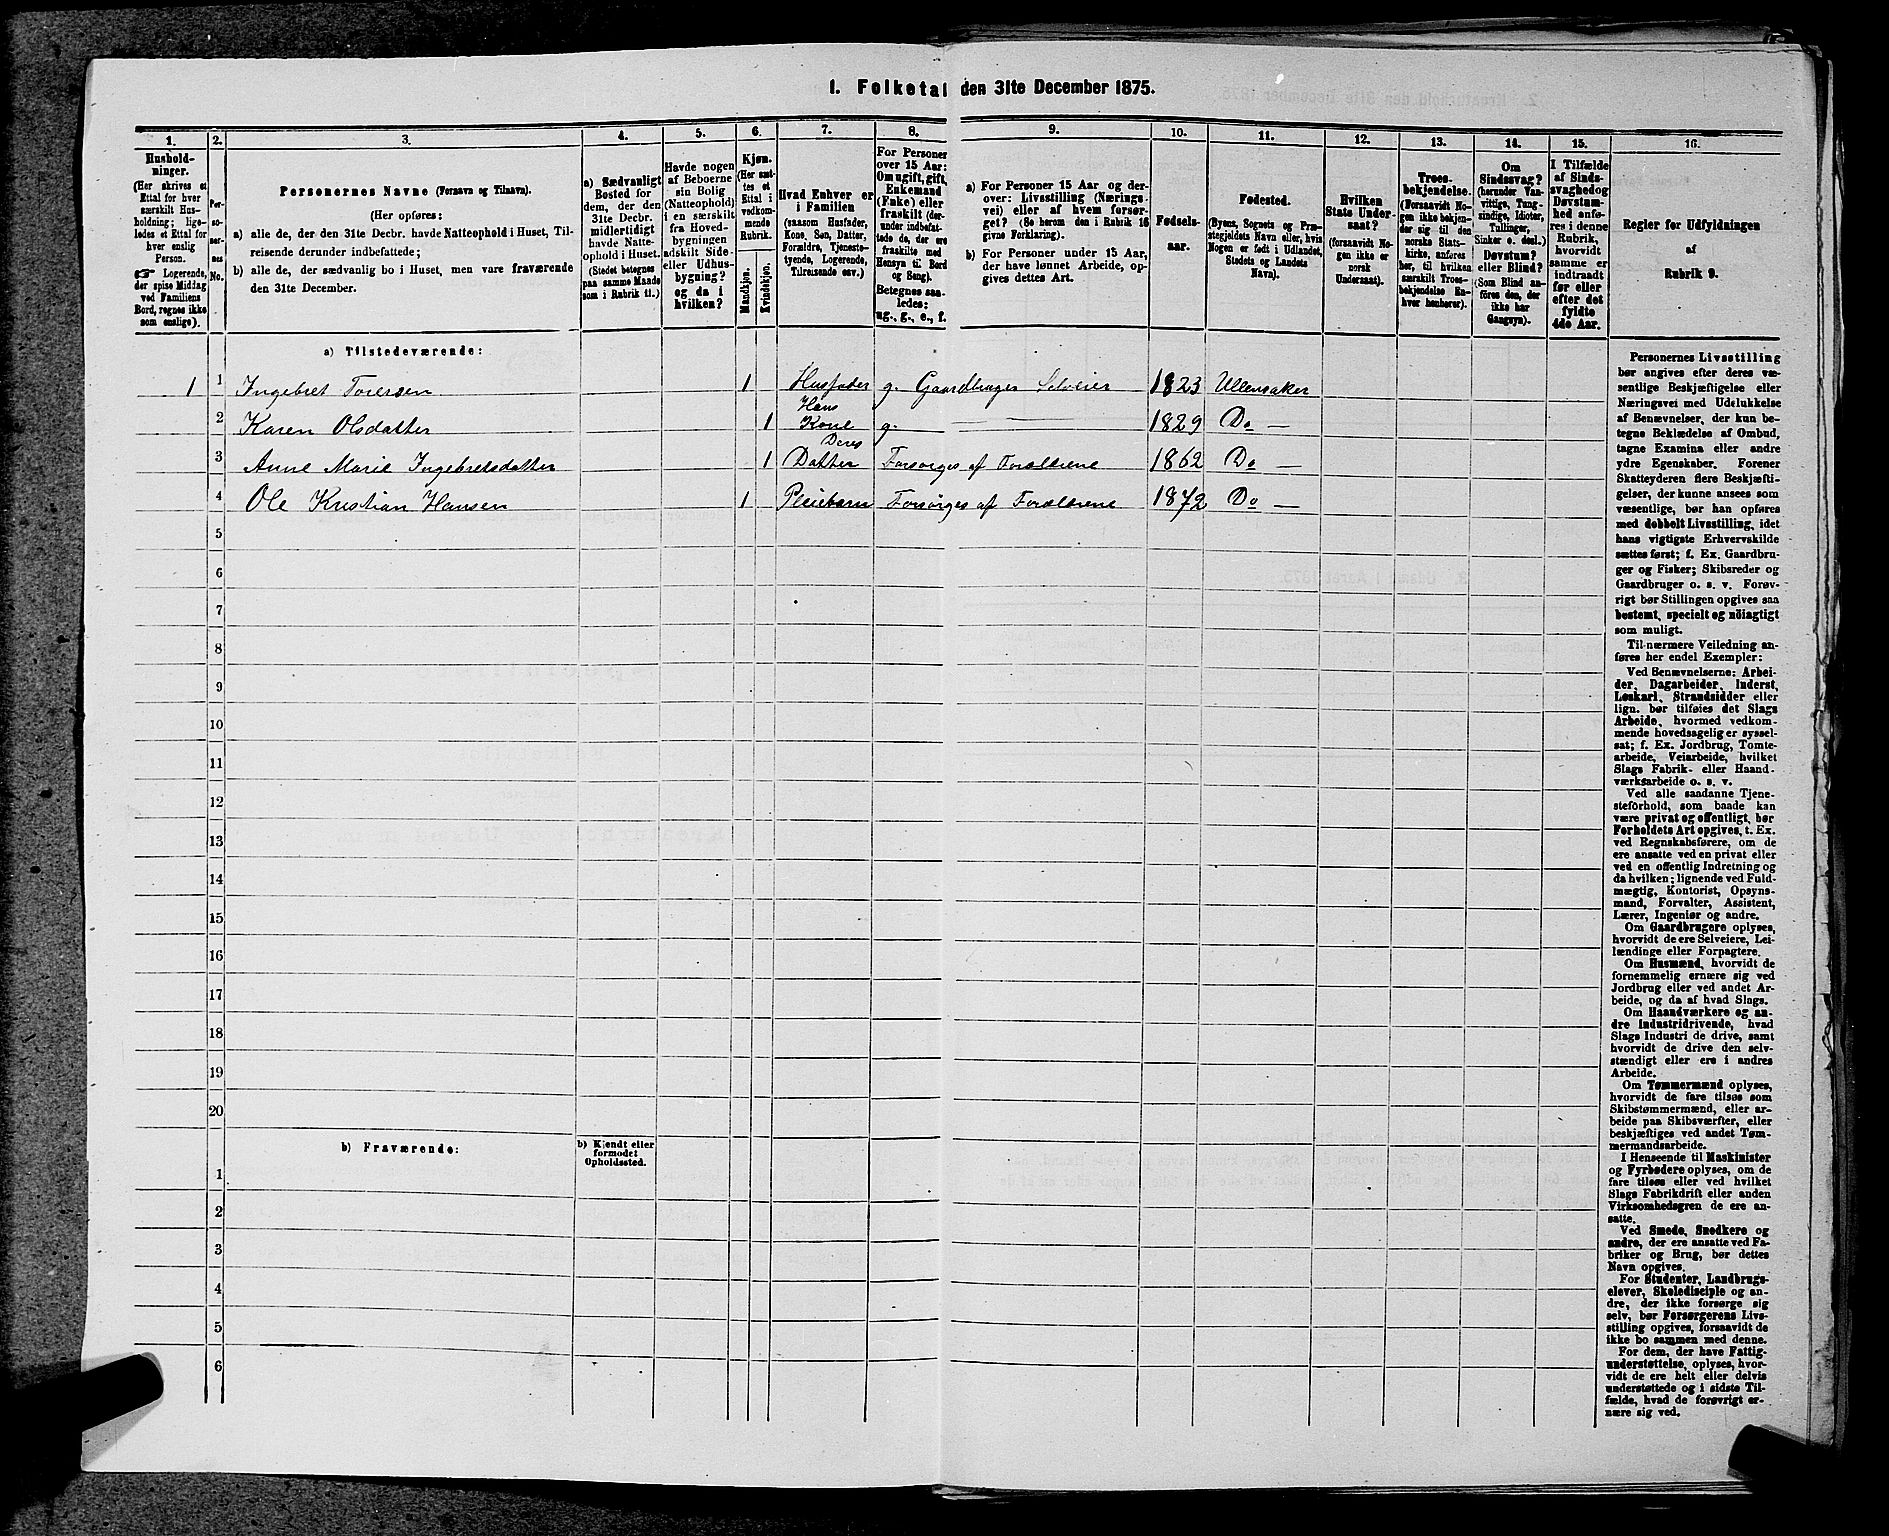 1. Folketal den 31te December 1875.
1. 2. 3. 4. 5. 6. 7. 8. 9. 10. 11. 12. 13. 14. 15. 16.
Hushold-
ninger.
(Her skrives et
Ettal for hver
særskilt Hus-
holdning; lige-
ledes et Ettal for
hver enslig
Person.
☞ Logerende,
der spise Middag
ved Familiens
Bord, regnes ikke
som enslige).
Per-
so-
ner-
nes
No.
Personernes Navne (Fornavn og Tilnavn).
(Her opføres:
a) alle de, der den 31te Decbr. havde Natteophold i Huset, Til-
reisende derunder indbefattede;
b) alle de, der sædvanlig bo i Huset, men vare fraværende
den 31te December.
a) Sædvanligt
Bosted for
dem, der den
31te Decbr.
midlertidigt
havde Natte-
ophold i Huset.
(Stedet betegnes
paa samme Maade
som i Rubrik 11.)
Havde nogen
af Beboerne
sin Bolig
(Natteophold)
i en særskilt
fra Hoved-
bygningen
adskilt Side-
eller Udhus-
bygning?
og da i
hvilken?
Kjøn.
(Her sæt-
tes et
Ettal i
vedkom-
mende
Rubrik.
Mandkjøn.
Kvindekjøn.
Hvad Enhver er
i Familien
(saasom Husfader,
Kone, Søn, Datter,
Forældre, Tjeneste-
tyende, Logerende,
Tilreisende osv.)
For Personer
over 15 Aar:
Om ugift, gift,
Enkemand
(Enke) eller
fraskilt (der-
under indbefat-
tede de, der ere
fraskilte med
Hensyn til Bord
og Seng).
Betegnes saa-
ledes:
ug., g., e., f.
a) For Personer 15 Aar og der-
over: Livsstilling (Nærings-
vei) eller af hvem forsør-
get? (Se herom den i Rubrik 16
givne Forklaring).
b) For Personer under 15 Aar,
der have lønnet Arbeide, op-
gives dettes Art.
Fødsels-
aar.
Fødested.
(Byens, Sognets og Præ-
stegjeldets Navn eller, hvis
Nogen er født i Udlandet,
Stedets og Landets
Navn).
Hvilken
Stats Under-
saat?
(forsaavidt No-
gen ikke er
norsk
Undersaat).
Troes-
bekjendelse.
(Forsaavidt No-
gen ikke bekjen-
der sig til den
norske Stats-
kirke, anføres
her, til hvilken
særskilt Troes-
bekjendelse En-
hver henhører).
Om
Sindssvag?
(herunder Van-
vittige, Tung-
sindige, Idioter,
Tullinger,
Sinker o. desl.)
Døvstum?
eller Blind?
(Som Blind an-
føres den, der
ikke har
Gangsyn).
I Tilfælde
af Sinds-
svaghed og
Døvstum-
hed anfø-
res i denne
Rubrik,
hvorvidt
samme er
indtraadt
før eller
efter det
fyldte
4de Aar.
Regler for Udfyldningen
af
Rubrik 9.
a) Tilstedeværende:
1 1 Ingebret Toresen 1 Husfader g. Gaardbruger Selveier 1823 Ullensaker
Hans
2 Karen Olsdatter 1 Kone g. — — 1829 Do —
Deres
3 Anne Marie Ingebretsdatter 1 Datter Forsørges af Forældrene 1862 Do —
4 Ole Kristian Hansen 1 Pleiebarn Forsørges af Forældrene 1872 Do —
5
6
7
8
9
10
11
12
13
14
15
16
17
18
19
20
b) Fraværende:
b) Kjendt eller
formodet
Opholdssted.
1
2
3
4
5
6
Personernes Livsstilling
bør angives efter deres væ-
sentlige Beskjæftigelse eller
Næringsvei med Udelukkelse
af Benævnelser, der kun be-
tegne Beklædelse af Ombud,
tagne Examina eller andre
ydre Egenskaber. Forener
Skatteyderen flere Beskjæfti-
gelser, der kunne ansees som
væsentlige, bør han opføres
med dobbelt Livsstilling, idet
hans vigtigste Erhvervskilde
sættes først; f. Ex. Gaardbru-
ger og Fisker; Skibsreder og
Gaardbruger o. s. v. Forøv-
rigt bør Stillingen opgives saa
bestemt, specielt og nöiagtigt
som muligt.
Til nærmere Veiledning an-
føres her endel Exempler:
Ved Benævnelserne: Arbei-
der, Dagarbeider, Inderst,
Løskarl, Strandsidder eller
lign. bør tilføies det Slags
Arbeide, hvormed vedkom-
mende hovedsagelig er syssel-
sat; f. Ex. Jordbrug, Tomte-
arbeide, Veiarbeide, hvilket
Slags Fabrik- eller Haand-
værksarbeide o. s. v.
Ved alle saadanne Tjene-
steforhold, som baade kan
være privat og offentligt, bør
Forholdets Art opgives, t. Ex.
ved Regnskabsførere, om de
ere ansatte ved en privat eller
ved en offentlig Indretning og
da hvilken; lignende ved Fuld-
mægtig, Kontorist, Opsyns-
mand, Forvalter, Assistent,
Lærer, Ingeniør og andre.
Om Gaardbrugere oplyses,
hvorvidt de ere Selveiere, Lei-
lændinge eller Forpagtere.
Om Husmænd, hvorvidt de
fornemmelig ernære sig ved
Jordbrug eller ved andet Ar-
beide, og da af hvad Slags.
Om Haandværkere og an-
dre Industridrivende, hvad
Slags Industri de drive, samt
hvorvidt de drive den selv-
stændigt eller ere i andres
Arbeide.
Om Tømmermænd oplyses,
hvorvidt de fare tilsøs som
Skibstømmermænd, eller ar-
beide paa Skibsværfter, eller
beskjæftiges ved andet Tøm-
mermandsarbeide.
I Henseende til Maskinister
og Fyrbødere oplyses, om de
fare tilsøs eller ved hvilket
Slags Fabrikdrift eller anden
Virksomhedsgren de ere an-
satte.
Ved Smede, Snedkere og
andre, der ere ansatte ved Fa-
briker og Brug, bør dettes
Navn opgives.
For Studenter, Landbrugs-
elever, Skoledisciple og an-
dre, der ikke forsørge sig
selv, bør Forsørgerens Livs-
stilling opgives, forsaavidt de
ikke bo sammen med denne.
For dem, der have Fattig-
understøttelse, oplyses, hvor-
vidt de ere helt eller delvis
understøttede og i sidste Til-
fælde, hvad de forøvrigt er-
nære sig ved.